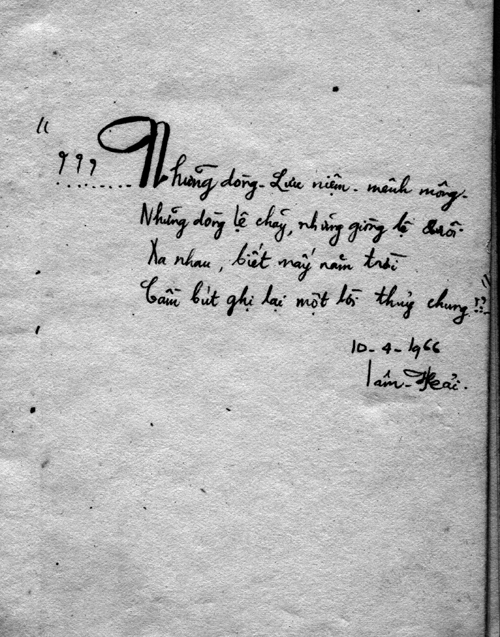 "
??? ........ Những dòng - Lưu niệm - mênh mông -
Những dòng lệ chảy, những giòng lệ xuôi
Xa nhau, biết mấy năm trời
Cầm bút ghi lại một lời thủy chung !? "
10 - 4 - 1966
Tâm - Hải.